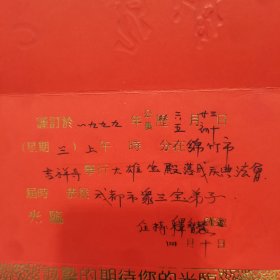 謹訂於一九九九年公曆六月廿三日
農五初十
(星期三)上午 時 分在綿竹市
吉祥寺舉行大雄宝殿落成庆典法會
屆時 恭候 成都市衆三宝弟子
光臨
住持 釋
月十日
的期待你的光臨